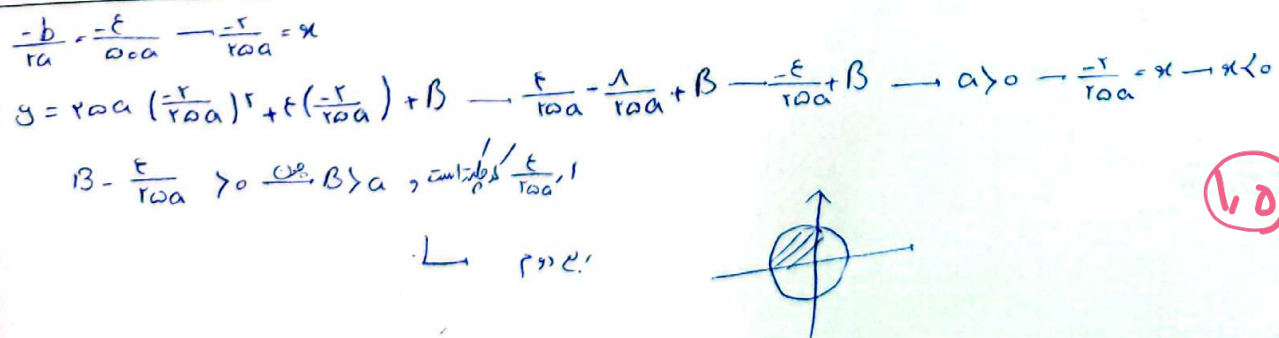 -b/۲a = -۴/۵۰a — -۲/۲۵a = x
y = ۲۵a (-۲/۲۵a)^۲ + ۴(-۲/۲۵a) + B — ۴/۲۵a - ۸/۲۵a + B — -۴/۲۵a + B — a>۰ — -۲/۲۵a = x — x<۰
B - ۴/۲۵a >۰ چون B>a و ۴/۲۵a از ۱ است
ربع دوم
۱,۵